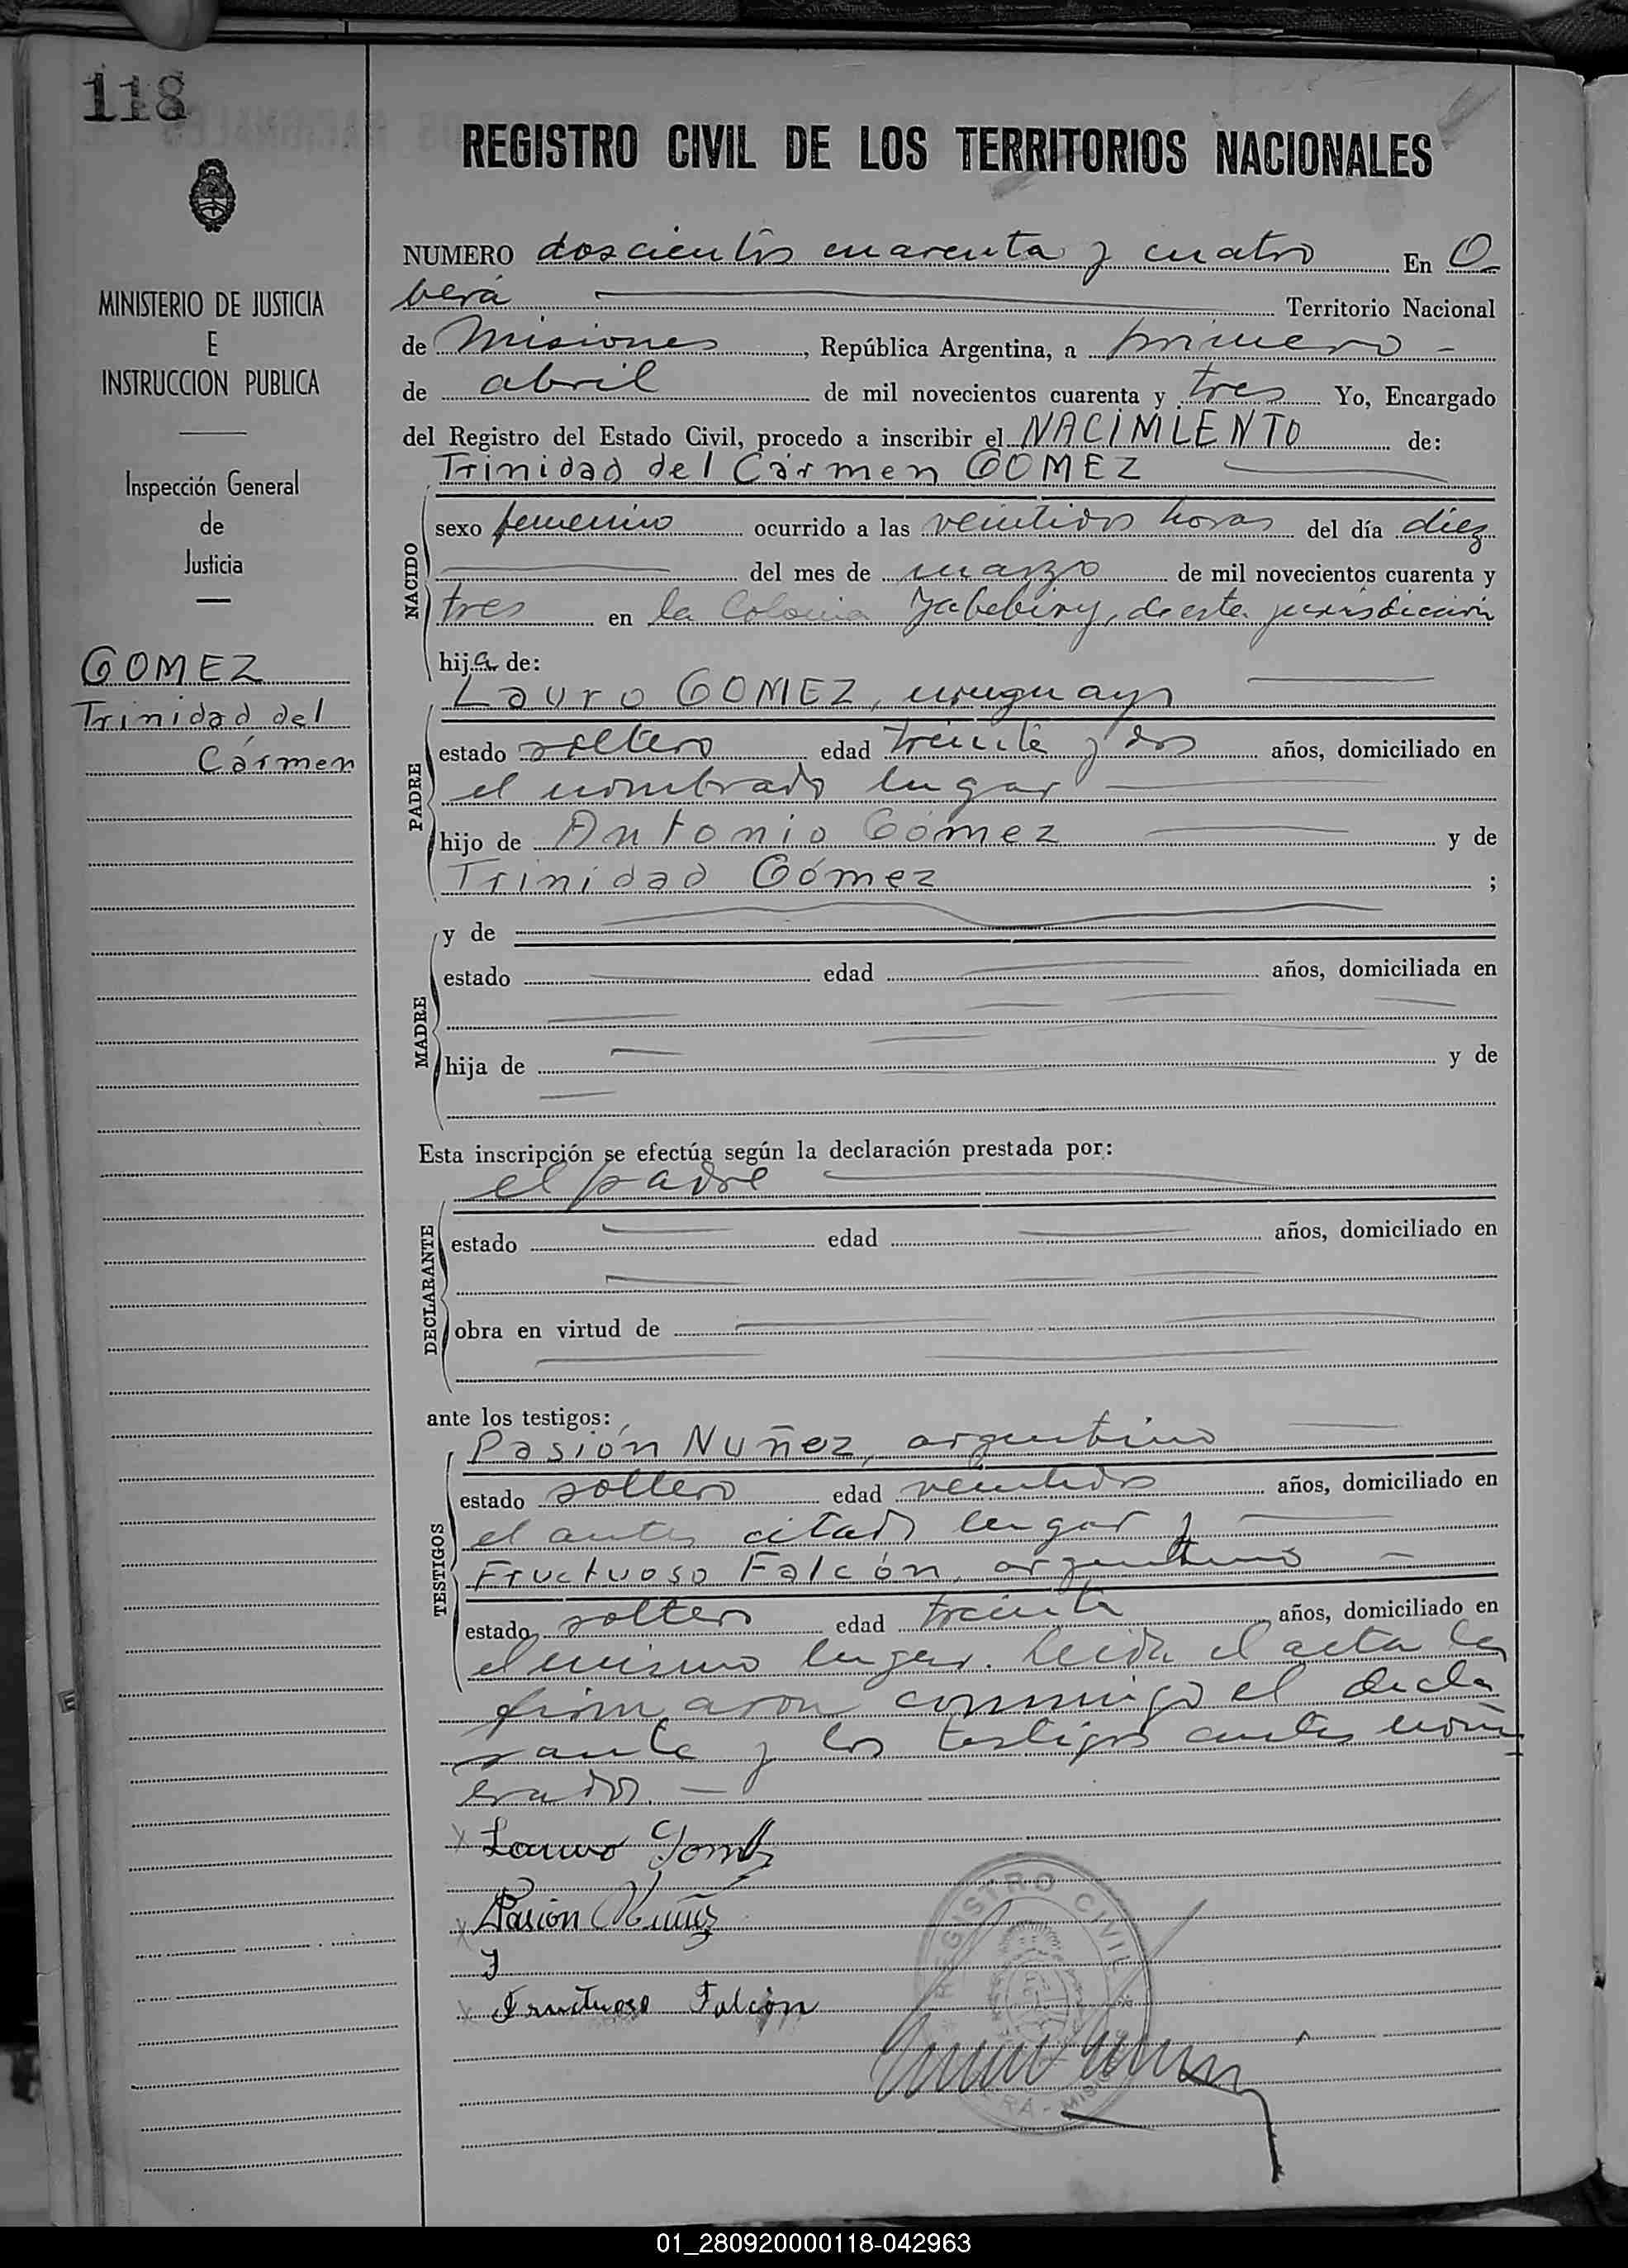 118
REGISTRO CIVIL DE LOS TERRITORIOS NACIONALES
MINISTERIO DE JUSTICIA
E
INSTRUCCION PUBLICA
Inspección General
de
Justicia
GOMEZ
Trinidad del
Cármen
NUMERO doscientos cuarenta y cuatro En O
berá Territorio Nacional
de Misiones, República Argentina, a primero
de abril de mil novecientos cuarenta y tres Yo, Encargado
del Registro del Estado Civil, procedo a inscribir el NACIMIENTO de:
Trinidad del Cármen GOMEZ
NACIDO
sexo femenino ocurrido a las veintidos horas del día diez
del mes de marzo de mil novecientos cuarenta y
tres en la Colonia Yabebiry, de esta jurisdicción
hija de:
PADRE
Lauro GOMEZ, uruguayo
estado soltero edad treinta y dos años, domiciliado en
el nombrado lugar
hijo de Antonio Gómez y de
Trinidad Gómez ;
MADRE
y de
estado edad años, domiciliada en
hija de y de
Esta inscripción se efectúa según la declaración prestada por:
el padre
DECLARANTE
estado edad años, domiciliado en
obra en virtud de
ante los testigos:
TESTIGOS
Pasión Nuñez, argentino
estado soltero edad veintidos años, domiciliado en
el antes citado lugar y
Fructuoso Falcón, argentino
estado soltero edad treinta años, domiciliado en
el mismo lugar. Leida el acta la
firmaron conmigo el decla
rante y los testigos antes nom
erados.
x Lauro Gomez
x Pasion Nuñez
y
x Fructuoso Falcón
REGISTRO CIVIL
01_280920000118-042963